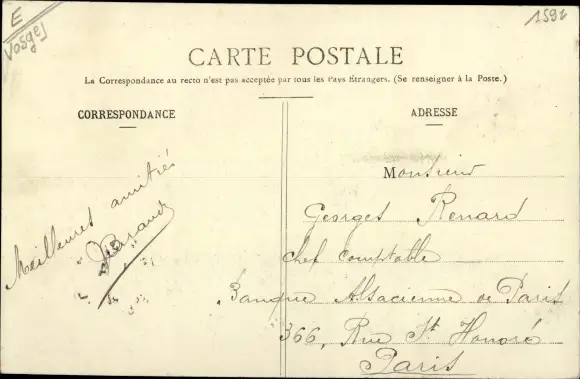 E
Vosges
1592
CARTE POSTALE
La Correspondance au recto n'est pas acceptée par tous les Pays Étrangers. (Se renseigner à la Poste.)
CORRESPONDANCE
Meilleures amitiés
ADRESSE
Monsieur
Georges Renard
chef comptable
Banque Alsacienne de Paris
366, Rue St Honoré
Paris